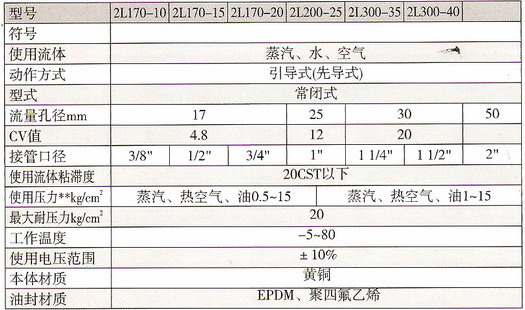 型号 2L170-10 2L170-15 2L170-20 2L200-25 2L300-35 2L300-40
符号
使用流体 蒸汽、水、空气
动作方式 引导式(先导式)
型式 常闭式
流量孔径mm 17 25 30 50
CV值 4.8 12 20
接管口径 3/8" 1/2" 3/4" 1" 1 1/4" 1 1/2" 2"
使用流体粘滞度 20CST以下
使用压力**kg/cm² 蒸汽、热空气、油0.5~15 蒸汽、热空气、油1~15
最大耐压力kg/cm² 20
工作温度 -5~80
使用电压范围 ±10%
本体材质 黄铜
油封材质 EPDM、聚四氟乙烯